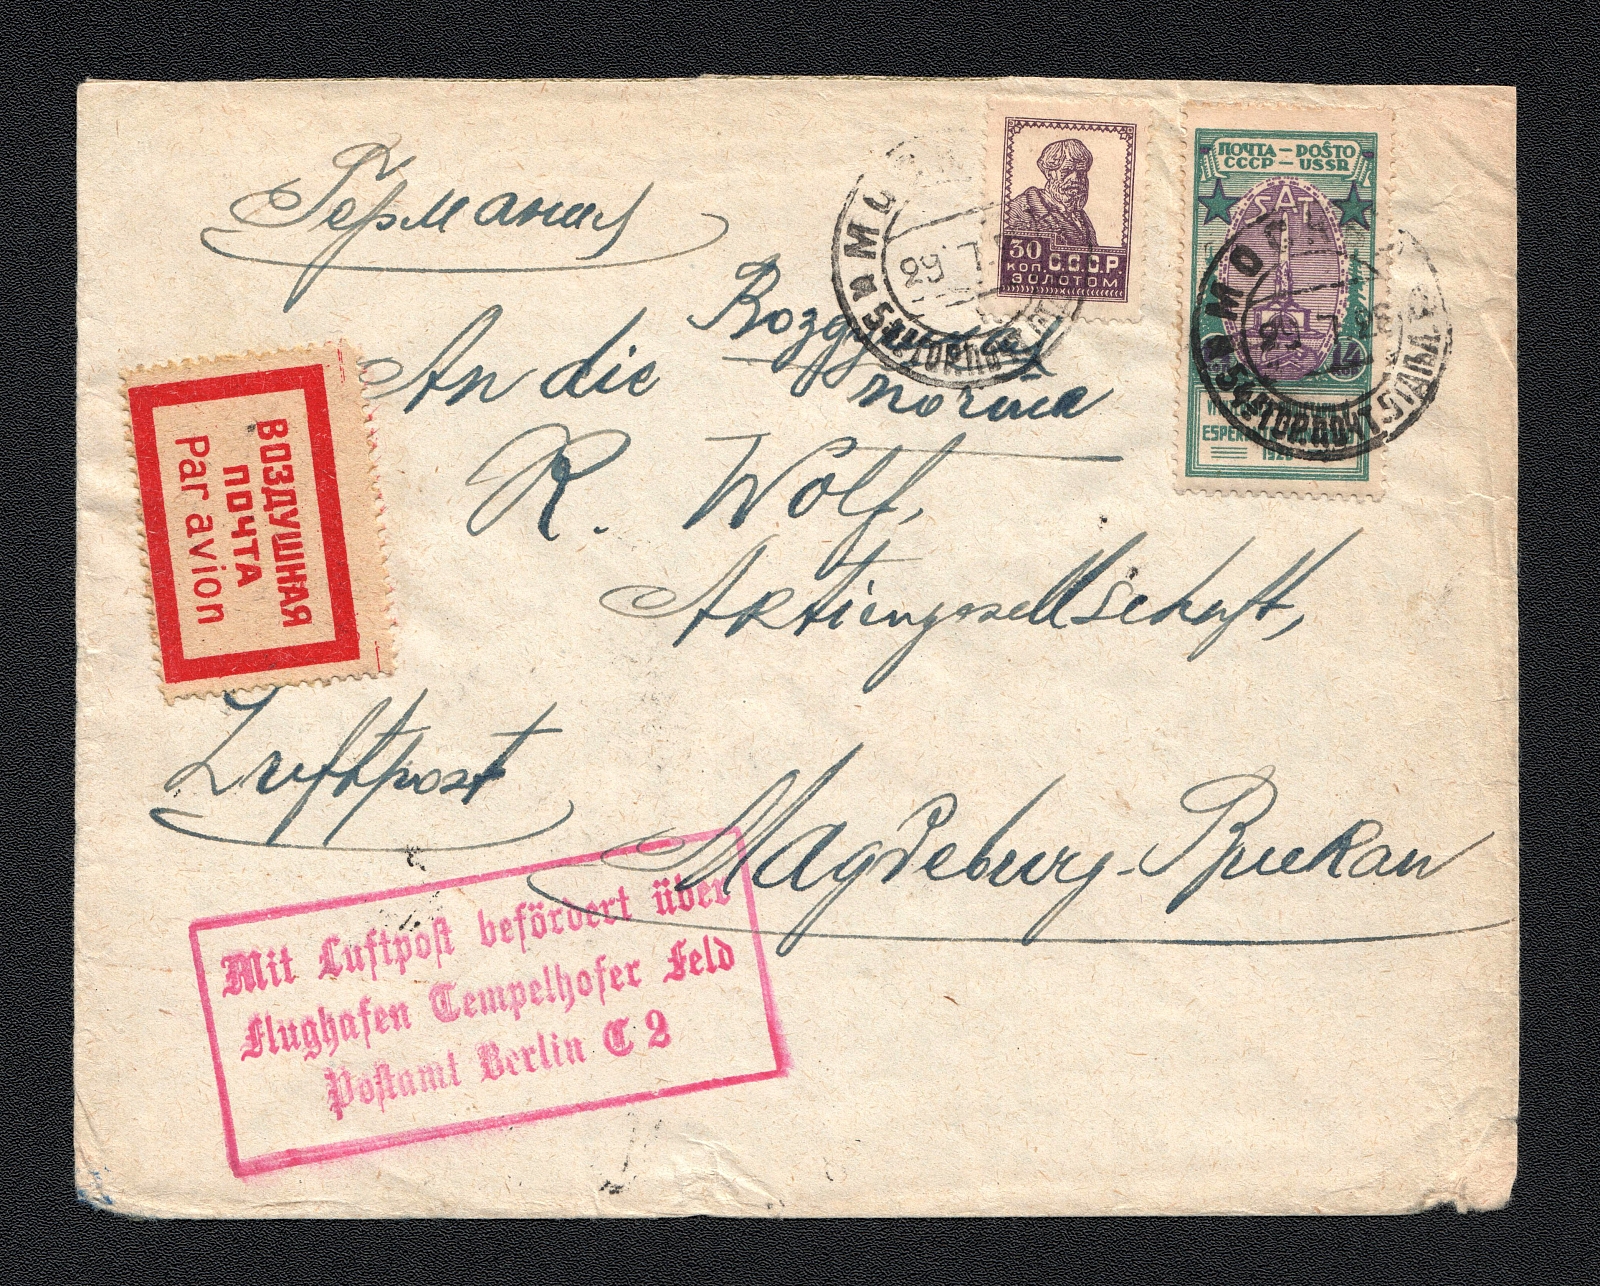 Германия
30
КОП. С.С.С.Р.
ЗОЛОТОМ
ПОЧТА – POŜTO
СССР – USSR
SAT
14
1926
МОСКВА
29 7 26
Воздушная
почта
An die
R. Wolf,
Aktiengesellschaft,
ВОЗДУШНАЯ
ПОЧТА
Par avion
Luftpost
Magdeburg-Buckau
Mit Luftpost befördert über
Flughafen Tempelhofer Feld
Postamt Berlin C 2